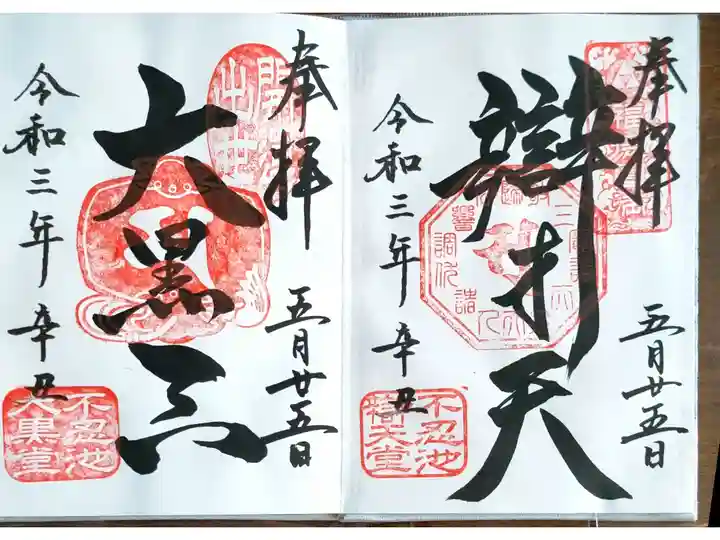 奉拝
五月廿五日
辯才天
令和三年辛丑
不忍池
辯天堂
奉拝
五月廿五日
大黒天
令和三年辛丑
不忍池
大黒堂